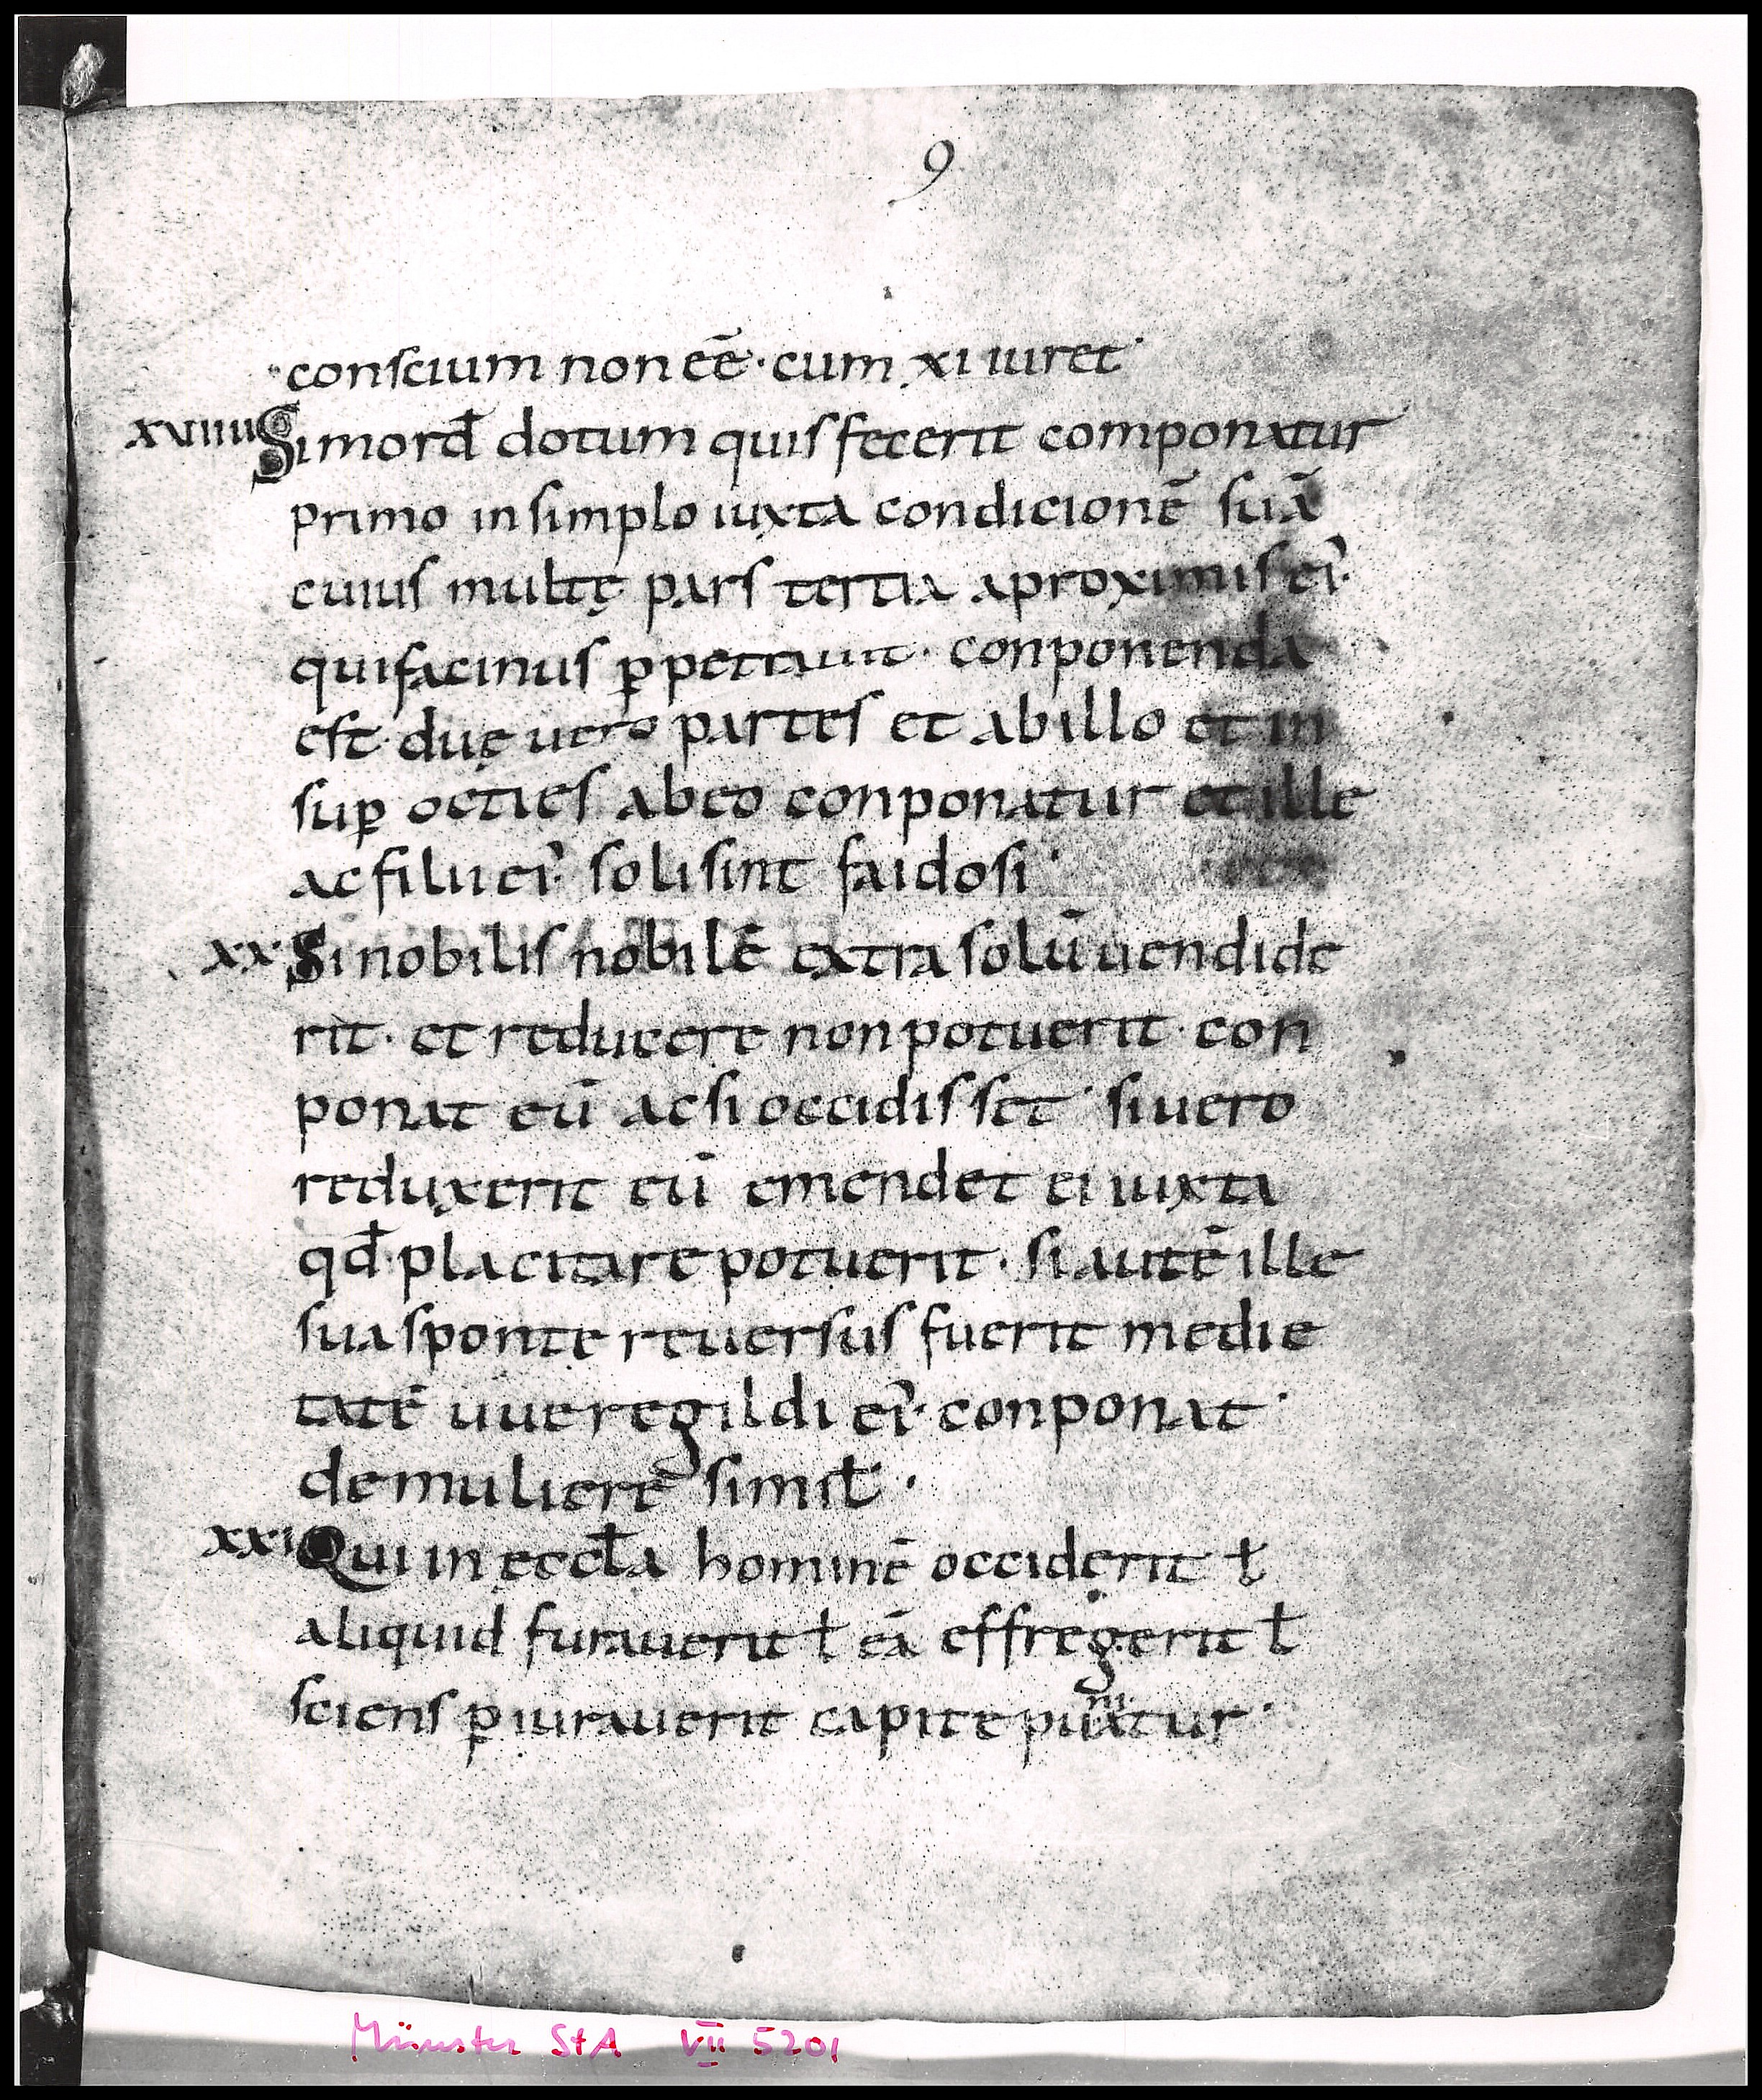 9
conscium non eē· cum xi iuret·
xviiii Si mord dotum quis fecerit componatur
primo in simplo iuxta condicionē suā
cuius multę pars tertia a proximis ei᾿·
qui facinus ꝑpetrauit· conponenda
est· duę uero partes et ab illo et in
suꝑ octies ab eo conponatur et ille
ac filii ei᾿· soli sint faidosi·
xx· Si nobilis nobilē extra solū uendide
rit· et reducere non potuerit· con
ponat eū ac si occidisset· si uero
reduxerit eū emendet ei iuxta
qđ· placitare potuerit· si autē ille
sua sponte reuersus fuerit medie
tatē uueregildi ei᾿· conponat·
de muliere simiƚ·
xxi Qui in ęccƚa hominē occiderit ƚ
aliquid furauerit ƚ eā effregerit ƚ
sciens ꝑiurauerit capite puniatur·
Münster StA VII 5201